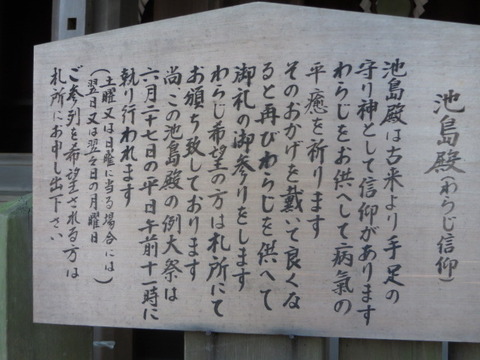 池島殿（わらじ信仰）
池島殿は古来より手足の
守り神として信仰があります
わらじをお供へして病氣の
平癒を祈ります
そのおかげを戴いて良くな
ると再びわらじを供へて
御礼の御参りをします
わらじ希望の方は札所にて
お頒ち致しております
尚、この池島殿の例大祭は
六月二十七日の平日午前十一時に
執り行われます
（土曜又は日曜に当る場合には
翌日又は翌々日の月曜日）
ご参列を希望される方は
札所にお申し出下さい